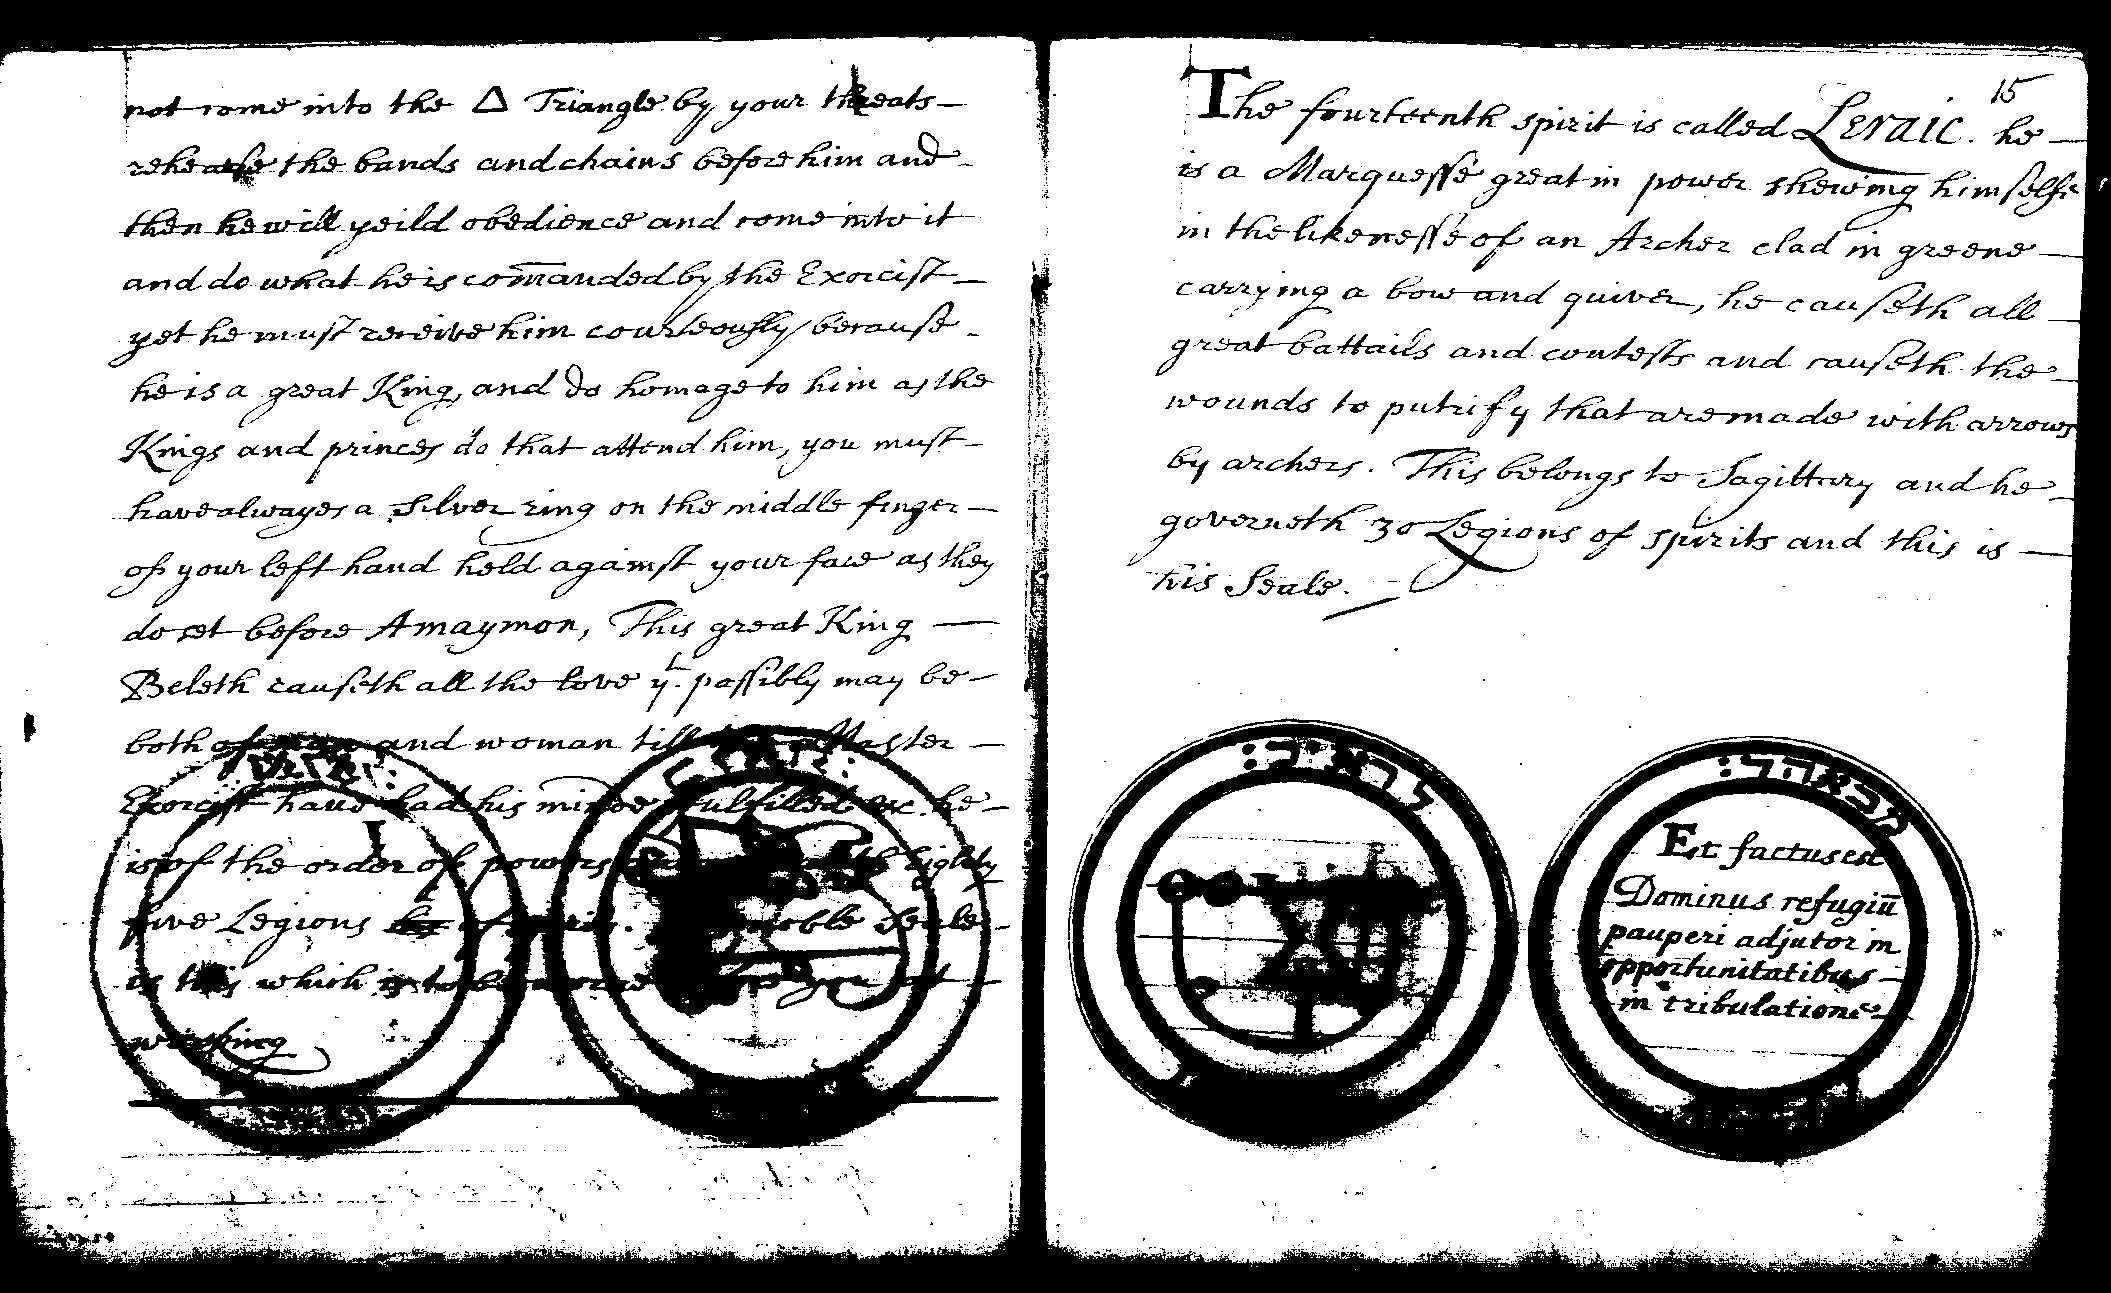 not come into the Δ Triangle by your threats
rehearse the bands and chains before him and
then he will yeild obedience and come into it
and do what he is com̄anded by the Exorcist
yet he must receive him courteously because
he is a great King, and do homage to him as the
Kings and princes do that attend him, you must
have alwayes a Silver ring on the middle finger
of your left hand held against your face as they
do set before Amaymon, This great King
Beleth causeth all the love yt possibly may be
both of man and woman till Master
Exorcist have had his minde fulfilled &c. he
is of the order of powers Eighty
five Legions of noble Seale
is this which is to be you at
working
15
The fourteenth spirit is called Leraic. he
is a Marquesse great in power shewing himselfe
in the likenesse of an Archer clad in greene
carrying a bow and quiver, he causeth all
great battails and contests and causeth the
wounds to putrify that are made with arrows
by archers. This belongs to Sagittary and he
governeth 30 Legions of spirits and this is
his Seale.
לראיכ:
מבאהל:
Et factus est
Dominus refugiū
pauperi adjutor in
opportunitatibus
in tribulatione